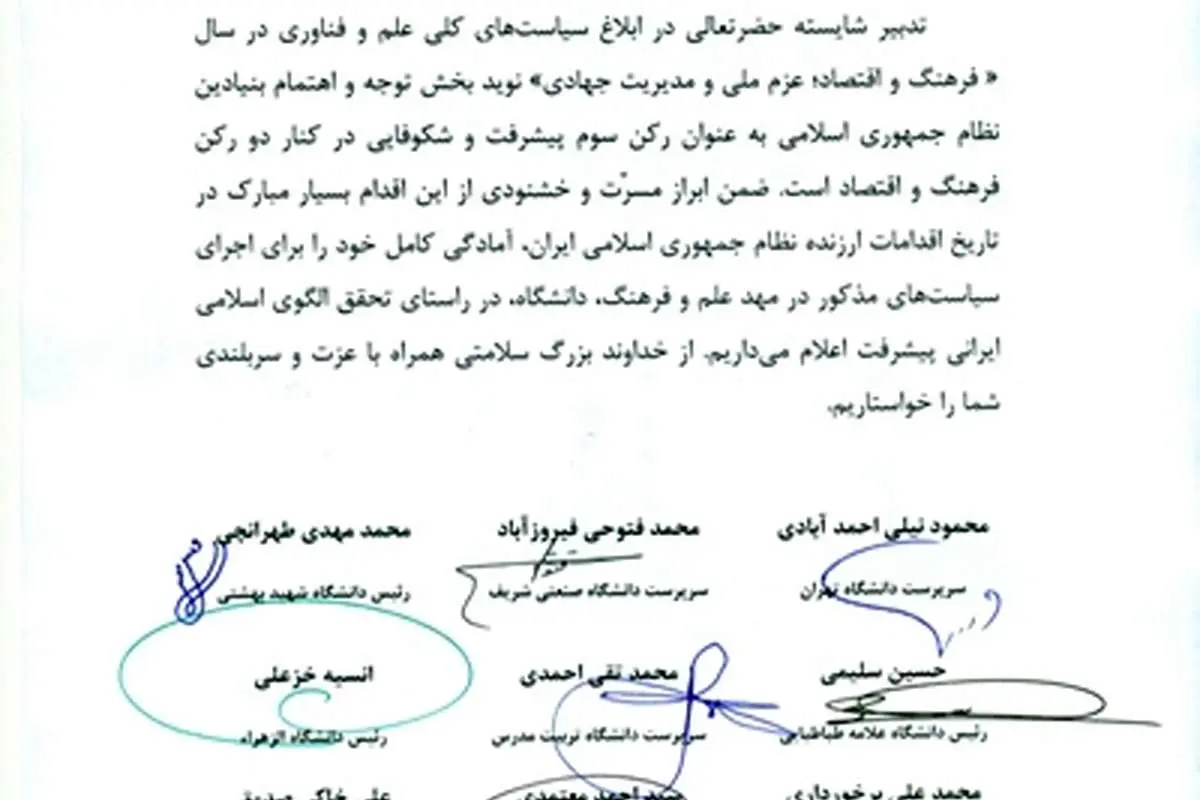 تدبیر شایسته حضرتعالی در ابلاغ سیاست‌های کلی علم و فناوری در سال
« فرهنگ و اقتصاد؛ عزم ملی و مدیریت جهادی» نوید بخش توجه و اهتمام بنیادین
نظام جمهوری اسلامی به عنوان رکن سوم پیشرفت و شکوفایی در کنار دو رکن
فرهنگ و اقتصاد است. ضمن ابراز مسرّت و خشنودی از این اقدام بسیار مبارک در
تاریخ اقدامات ارزنده نظام جمهوری اسلامی ایران، آمادگی کامل خود را برای اجرای
سیاست‌های مذکور در مهد علم و فرهنگ، دانشگاه، در راستای تحقق الگوی اسلامی
ایرانی پیشرفت اعلام می‌داریم. از خداوند بزرگ سلامتی همراه با عزت و سربلندی
شما را خواستاریم.
محمود نیلی احمد آبادی محمد فتوحی فیروزآباد محمد مهدی طهرانچی
سرپرست دانشگاه تهران سرپرست دانشگاه صنعتی شریف رئیس دانشگاه شهید بهشتی
حسین سلیمی محمد تقی احمدی انسیه خزعلی
رئیس دانشگاه علامه طباطبایی سرپرست دانشگاه تربیت مدرس رئیس دانشگاه الزهراء
محمد علی برخورداری سید احمد معتمدی علی خاکی صدیق